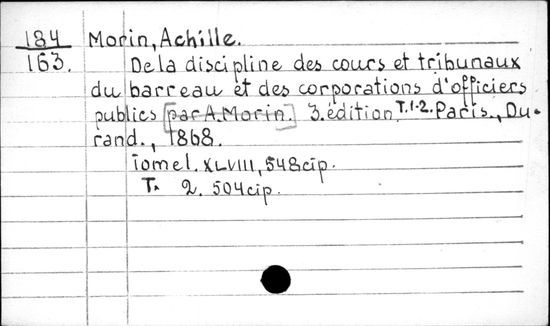 184 Morin, Achille.
163. De la discipline des cours et tribunaux
du barreau et des corporations d'officiers
publics [par A. Morin.] 3. édition. T. 1-2. Paris., Du-
rand., 1868.
Tome I. XLVIII, 548 cтр.
T. 2. 504 cтр.